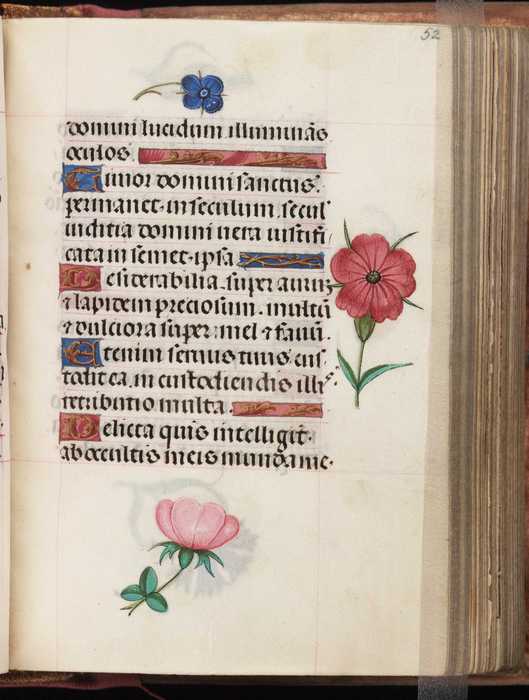 52
domini lucidum illuminās
oculos.
Timor domini sanctus.
permanet in seculum secul
iudicia domini vera iustifi
cata in semet ipsa.
Desiderabilia super aurū
⁊ lapidem preciosum. multū
⁊ dulciora super mel ⁊ fauū.
Etenim seruus tuus cus
todit ea. in custodiendis illis
retributio multa.
Delicta quis intelligit.
ab occultis meis munda me.